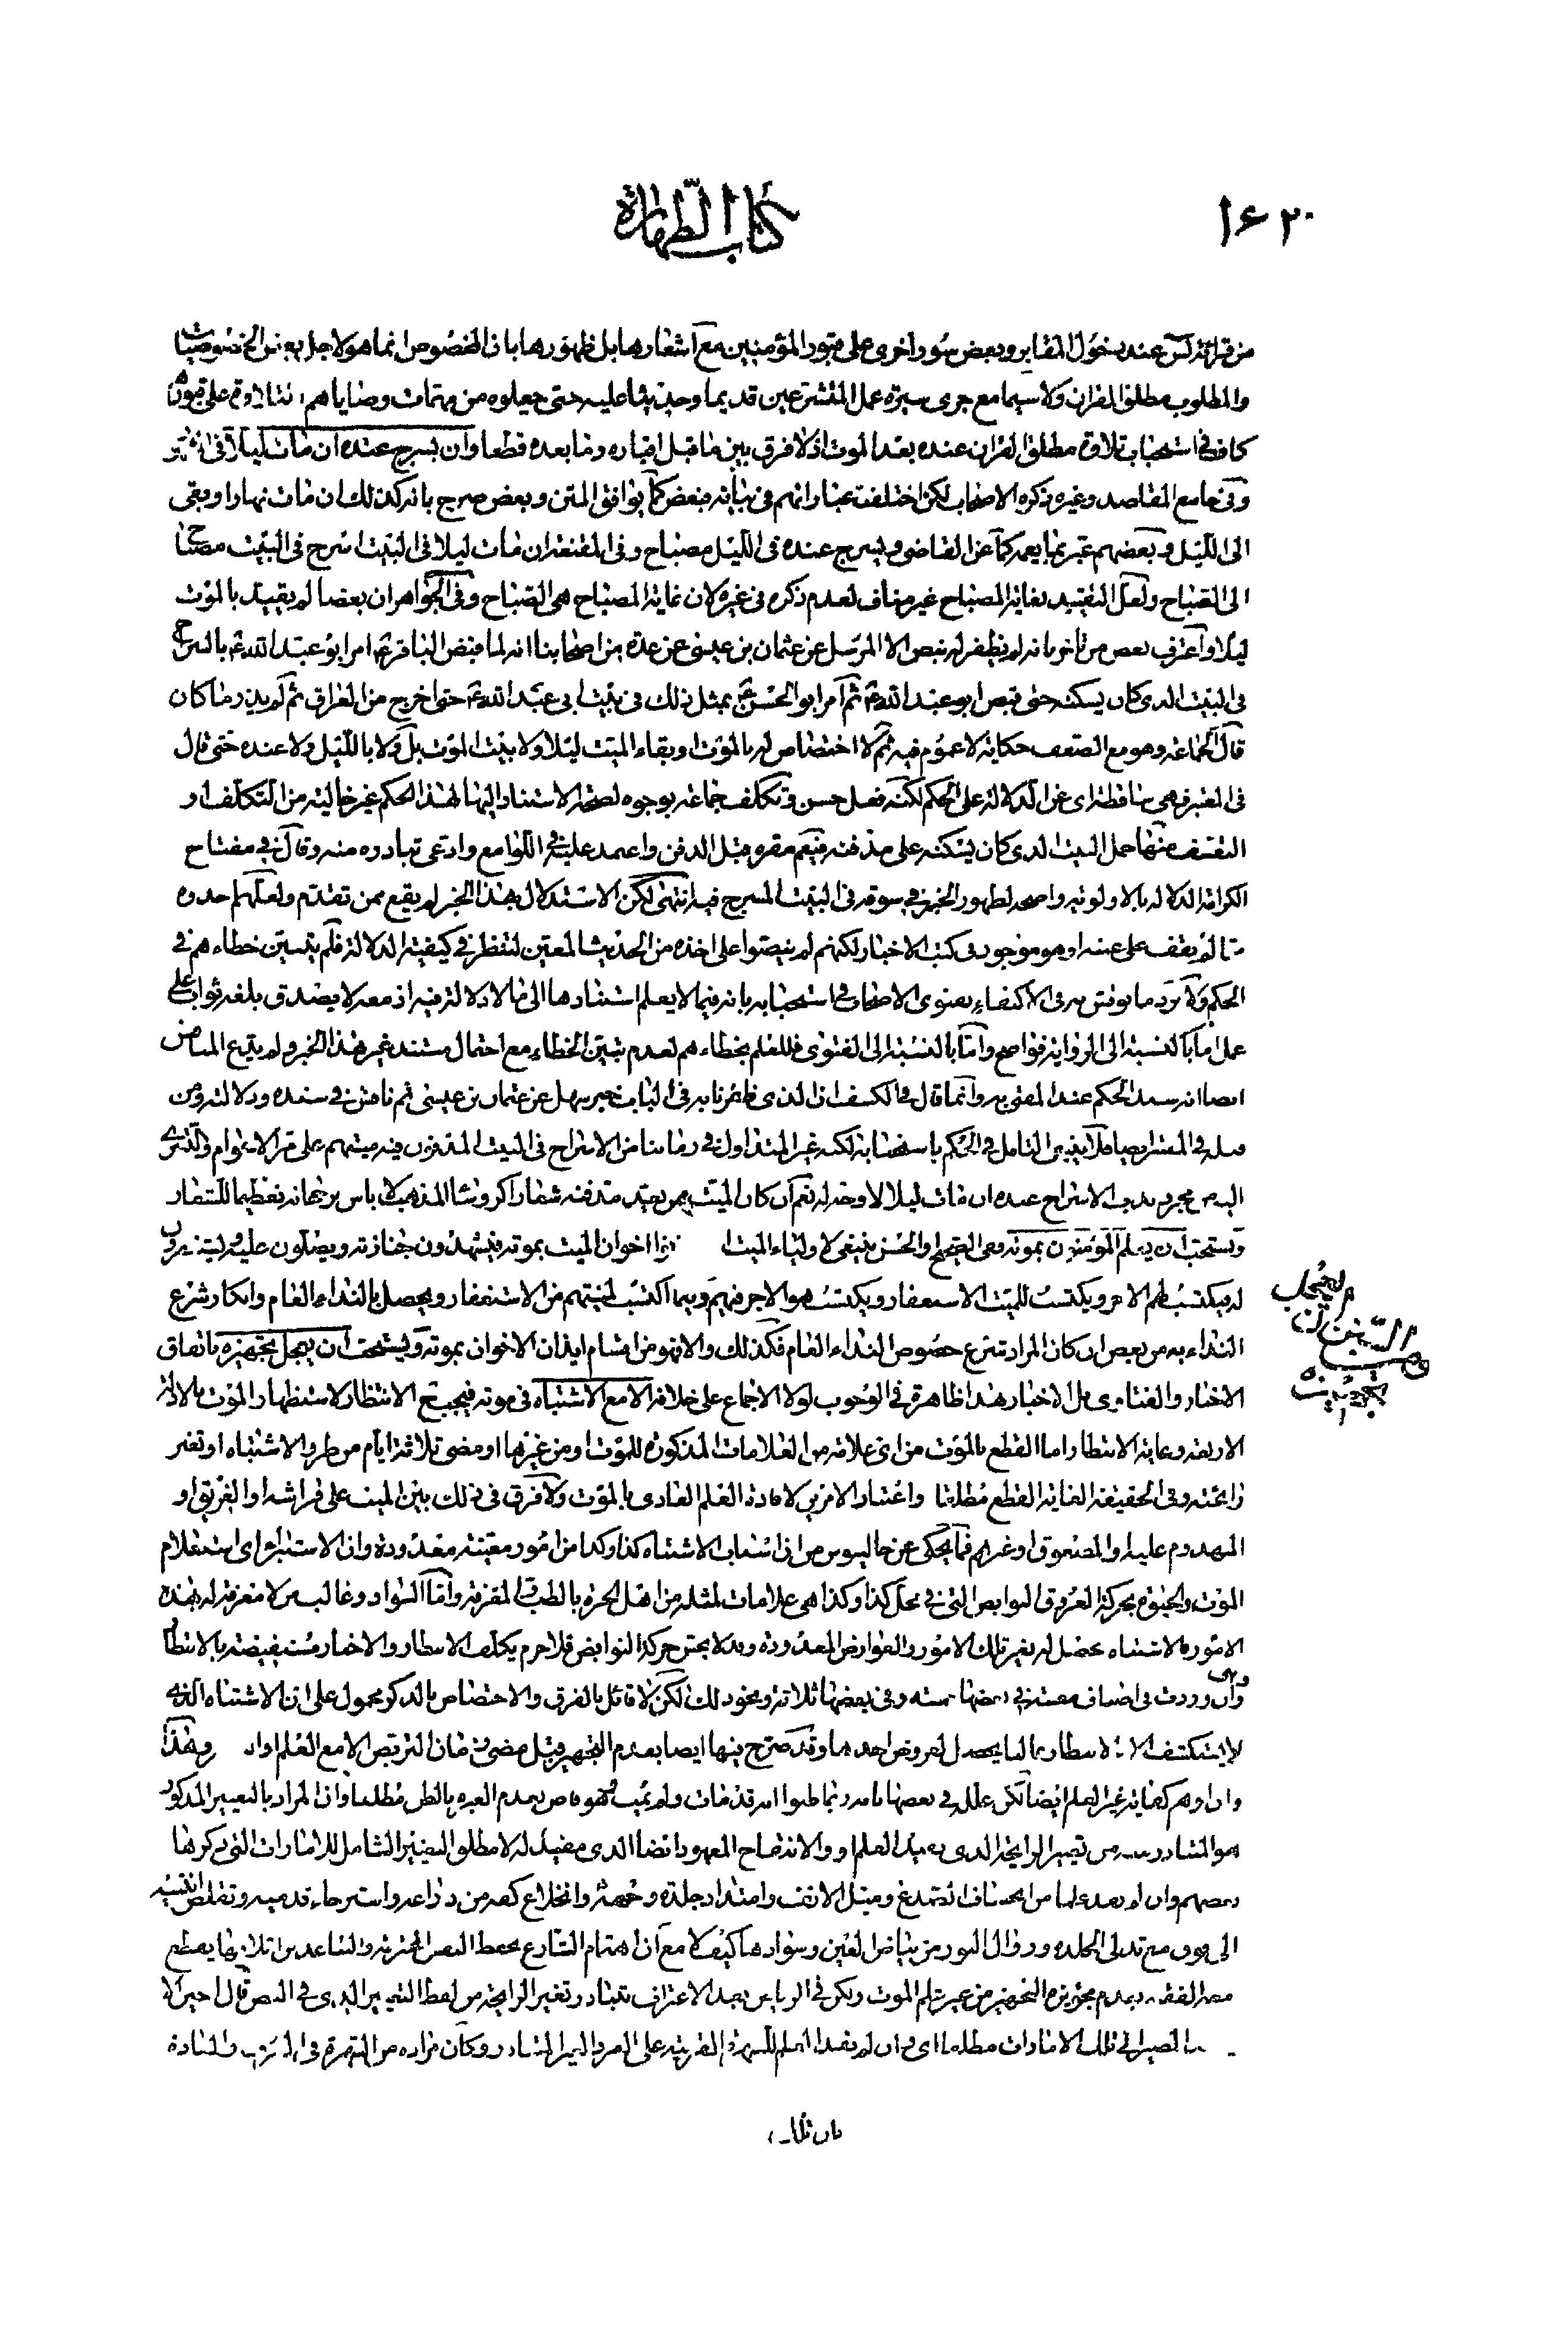 ١٦٢٠
كتاب الطهارة
من قرائة يس عند دخول المقابر وبعض سور اخرى على قبور المؤمنين مع اشعارها بل ظهورها بان الخصوص انما هو لاجل بعض الخصوصيات
والمطلوب مطلق القران ولا سيما مع جرى سيرة عمل المتشرعين قديما وحديثا عليه حتى جعلوه من مهمات وصاياهم تلاوة على قبورهم
كاف في استحباب تلاوة مطلق القران عنده بعد الموت اذ لا فرق بين ما قبل اقباره وما بعده قطعا وان يسرج عنده ان مات ليلا
وفي جامع المقاصد وغيره ذكره الاصحاب لكن اختلفت عباراتهم في بيانه فبعض كما يوافق المتن وبعض صرح بانه كذلك ان مات نهارا وبقى
الى الليل وبعضهم عبر بما يعمه كما عن القاضي ويسرج عنده في الليل مصباح وفي المقنعة ان مات ليلا في البيت اسرج في البيت مصباح
الى الصباح ولعل التقييد بغاية المصباح غير مناف لعدم ذكره في غيره لان غاية المصباح هي الصباح وفي الجواهر ان بعضا لم يقيد بالموت
ليلا واعترف بعض من تاخر بانه لم يظفر له بنص الا المرسل عن عثمان بن عيسى عن عدة من اصحابنا انه لما قبض الباقر ع امر ابو عبد الله ع بالسراج
في البيت الذي كان يسكنه حتى قبض ابو عبد الله ع ثم امر ابو الحسن ع بمثل ذلك في بيت ابي عبد الله ع حتى اخرج من العراق ثم لم يدر ما كان
قال الجماعة وهو مع الضعف حكاية لا عموم فيه ثم لا اختصاص له بالموت وبقاء الميت ليلا ولا ببيت الموت بل ولا بالليل ولا عنده حتى قال
في المعتبر فهي ساقطة اي عن الدلالة على الحكم لكنه فعل حسن وتكلف جماعة بوجوه لصحة الاستناد اليها لهذا الحكم غير خالية من التكلف او
التعسف منها حمل البيت الذي كان يسكنه على مدفنه فيعم مقره قبل الدفن واعتمد عليه في اللوامع وادعى تبادره منه وقال في مفتاح
الكرامة الدلالة بالاولوية واضحة لظهور الخبر في سوقه في البيت المسرج فيه انتهى لكن الاستدلال بهذا الخبر لم يقع ممن تقدم ولعلهم اخذوه
مما لم نقف على عينه او هو موجود في كتب الاخبار لكنهم لم ينصوا على اخذه من الحديث المعين لننظر في كيفية الدلالة فلم يتبين خطاءهم في
الحكم ولا يرد ما نوقش به في الاكتفاء بفتوى الاصحاب في استحبابه بانه فيما لا يعلم استنادها الى ما لا دلالة فيه اذ معه لا يصدق بلغه ثواب على
عمل اما بالنسبة الى الرواية فواضح واما بالنسبة الى الفتوى فللعلم بخطاءهم لعدم تبين الخطاء مع احتمال مستند غير هذا الخبر
الحكم عند المفتي به وانما قال في الكشف ان الذي ظفرنا به في الباب خبر سهل عن عثمان بن عيسى ثم ناقش في سنده ودلالته ومن
التامل في الحكم باستحبابه لكنه غير المتداول في زماننا من الاسراج في البيت المدفون فيه ميتهم على مر الاعوام
مجرد الاسراج عنده ان مات ليلا لا وجه له نعم ان كان الميت ممن يعد مدفنه شعارا لا باس برجحانه تعظيما للشعار
ويستحب ان يعلم المؤمنون بموته وفي الصحيح والحسن ينبغي لاولياء الميت اخوان الميت بموته فيشهدون جنازته ويصلون عليه ويستغفرون
له فيكتسب لهم الاجر ويكتسب للميت الاستغفار ويكتسب هو الاجر فيهم وفيما اكتسب لميتهم من الاستغفار ويحصل بالنداء العام وانكار شرع
النداء به من بعض ان كان المراد شرع خصوص النداء العام فكذلك والا فهو من اقسام ايذان الاخوان بموته ويستحب ان يعجل تجهيزه باتفاق
الاخبار والفتاوى بل الاخبار هذا ظاهرة في الوجوب لولا الاجماع على خلافه الا مع الاشتباه في موته فيجب الانتظار لاستظهار الموت بالادلة
الاربعة وغاية الانتظار اما القطع بالموت من اي علامة من العلامات المذكورة للموت او من غيرها او مضى ثلاثة ايام من طرو الاشتباه او تغير
رائحته وفي الحقيقة الغاية القطع مطلقا واعتبار الامرين لافادة العلم العادي بالموت ولا فرق في ذلك بين الميت على فراشه او الغريق او
المهدوم عليه او المصعوق او غيرهم فما يحكى عن جالينوس من ان اسباب الاشتباه كذا وكذا من امور معينة معدودة وان الاستبراء اي استعلام
الموت والحيوة بحركة العروق النوابض التي في محل كذا وكذا هي علامات لمثله من اهل الخبرة بالطب المقررة واما السواد وغالب من لا معرفة له بهذه
الامور فالاشتباه يحصل له بغير تلك الامور والعوارض المعدودة وقد لا يحس حركة النوابض فلا جرم يكلف الانتظار والاخبار مستفيضة بالانتظار
وان وردت في اصناف معينة في بعضها خمسة وفي بعضها ثلاثة ونحو ذلك لكن لا قائل بالفرق والاختصاص بالذكر محمول على ان الاشتباه الذي
لا ينكشف الا بالانتظار غالبا يحصل لعروض احدها وقد صرح فيها ايضا بعدم التجهيز قبل مضى زمان التربص الا مع العلم وهذا
وان اوهم كفاية غير العلم ايضا لكن علل في بعضها بانه ربما ظنوا انه قد مات ولم يمت فهو ناص بعدم العبرة بالظن مطلقا وان المراد بالتغيير المذكور
هو المتبادر منه من تغيير الرائحة الذي يفيد العلم او والانتفاخ المعهود ايضا الذي مفيد له لا مطلق التغيير الشامل للامارات التي ذكرها
بعضهم وان لم يفد علما من انخساف الصدغ وميل الانف وامتداد جلدة وجهه وانخلاع كفه من ذراعه واسترخاء قدميه وتقلص انثييه
الى فوق مع تدلي الجلدة وزوال النور من بياض العين وسوادها كيف لا مع ان اهتمام الشارع بحفظ النفس المحترمة
بعدم تجويزهم التجهيز من غير علم الموت ولكن في الرياض بعد الاعتراف بتبادر تغير الرائحة من لفظ التغيير الذي في النص قال اخيرا
تلك الامارات مطلقا اي وان لم يفد العلم للشهرة القرينة على المراد وكان مراده من الشهرة